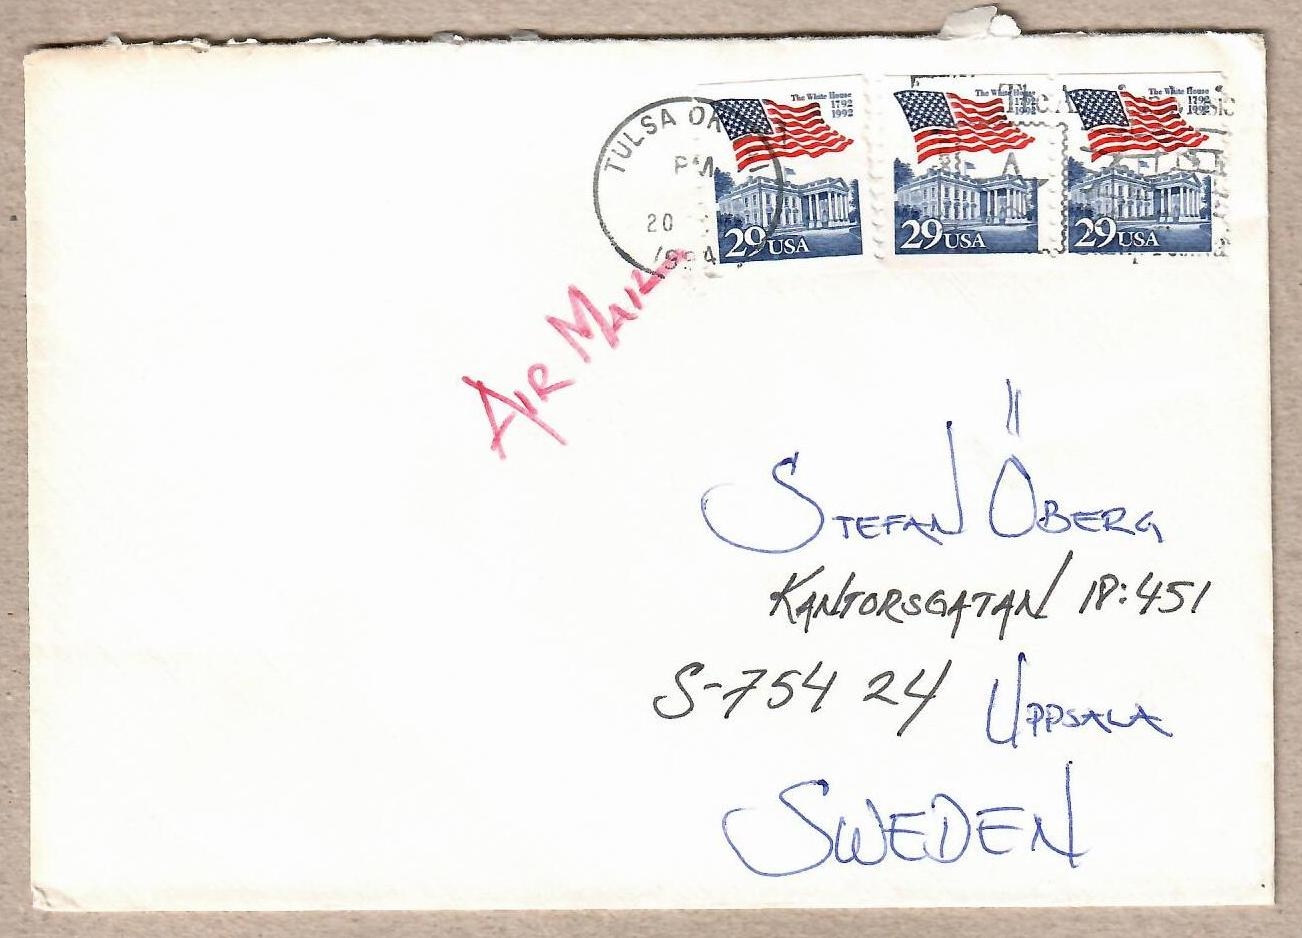 TULSA
PM
20
1994
The White House
1792
1992
29 USA
The White House
1792
1992
29 USA
The White House
1792
1992
29 USA
AIR MAIL
STEFAN ÖBERG
KANTORSGATAN 18:451
S-754 24 UPPSALA
SWEDEN